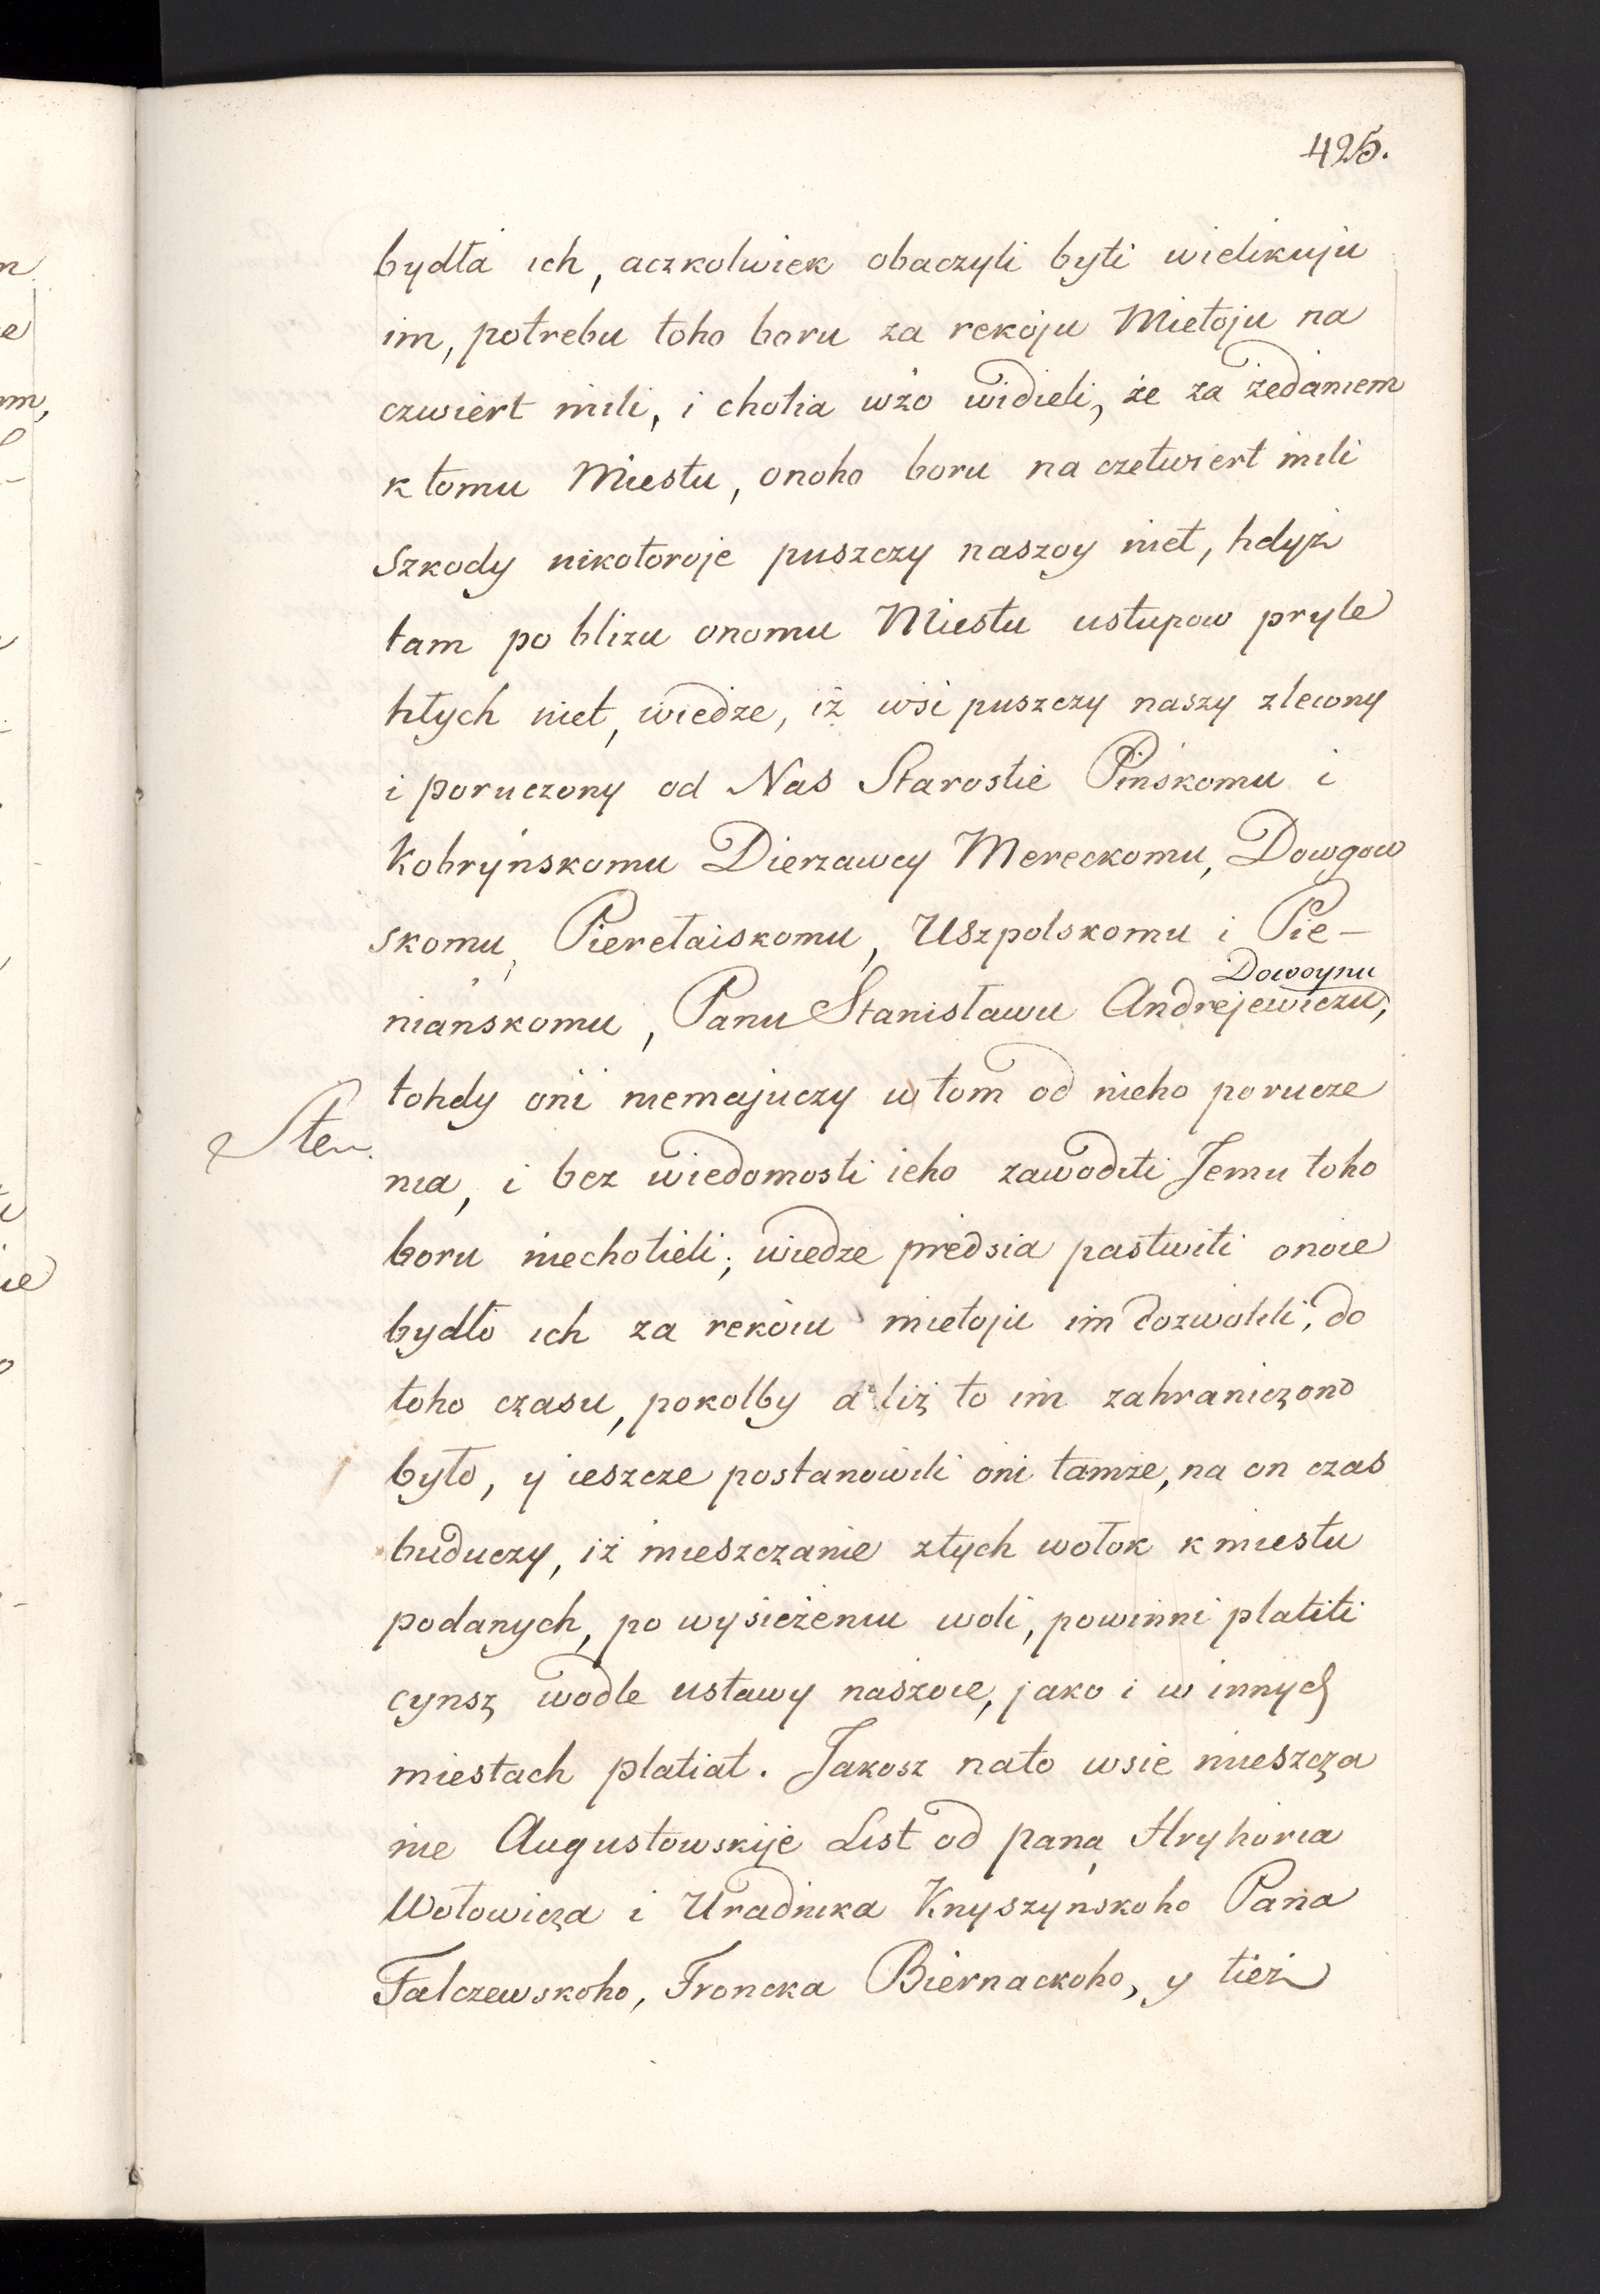 425.
bydła ich, aczkolwiek obaczyli byli wielikuju
im, potrebu toho boru za rekoju Mietoju na
czwiert mili, i chotia wżo widieli, że za żedaniem
k tomu Miestu, onoho boru na czetwiert mili
szkody nikotoroje puszczy naszoy niet, hdyż
tam po blizu onomu Miestu ustupow pryle
hłych niet, wiedże, iż wsi puszczy naszy zlecony
i poruczony od Nas Starostie Pinskomu i
Kobrynskomu Dierzawcy Mereckomu, Dowgow
skomu, Pierełaiskomu, Uszpolskomu i Pie-
Dowoynu
nianskomu, Panu Stanisławu Andrejewiczu,
tohdy oni niemajuczy w tom od nieho porucze
Ste
nia, i bez wiedomosti ieho zawoditi Jemu toho
boru niechotieli; wiedże predsia pastwiti onoie
bydło ich za rekoiu mietoju im dozwolili, do
toho czasu, pokolby aliż to im zahraniczono
było, y ieszcze postanowili oni tamże, na on czas
buduczy, iż mieszczanie z tych wołok k miestu
podanych, po wysieżeniu woli, powinni platiti
cynsz wodle ustawy naszoie, jako i w innych
miestach platiat. Jakosz nato wsie mieszcza
nie Augustowskije List od pana Hryhoria
Wołowicza i Uradnika Knyszynskoho Pana
Falczewskoho, Froncka Biernackoho, y tież